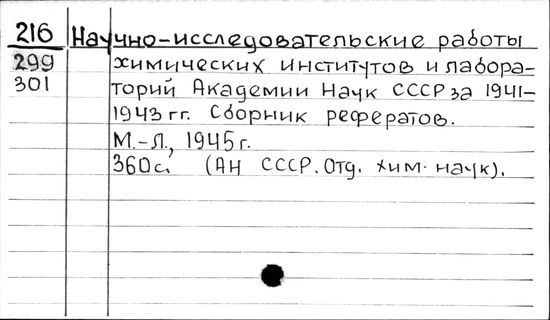 216 Научно-исследовательские работы
299 химических институтов и лабора-
301 торий Академии Наук СССР за 1941-
1943 гг. Сборник рефератов.
М.-Л., 1945 г.
360с. (АН СССР. Отд. хим. наук).